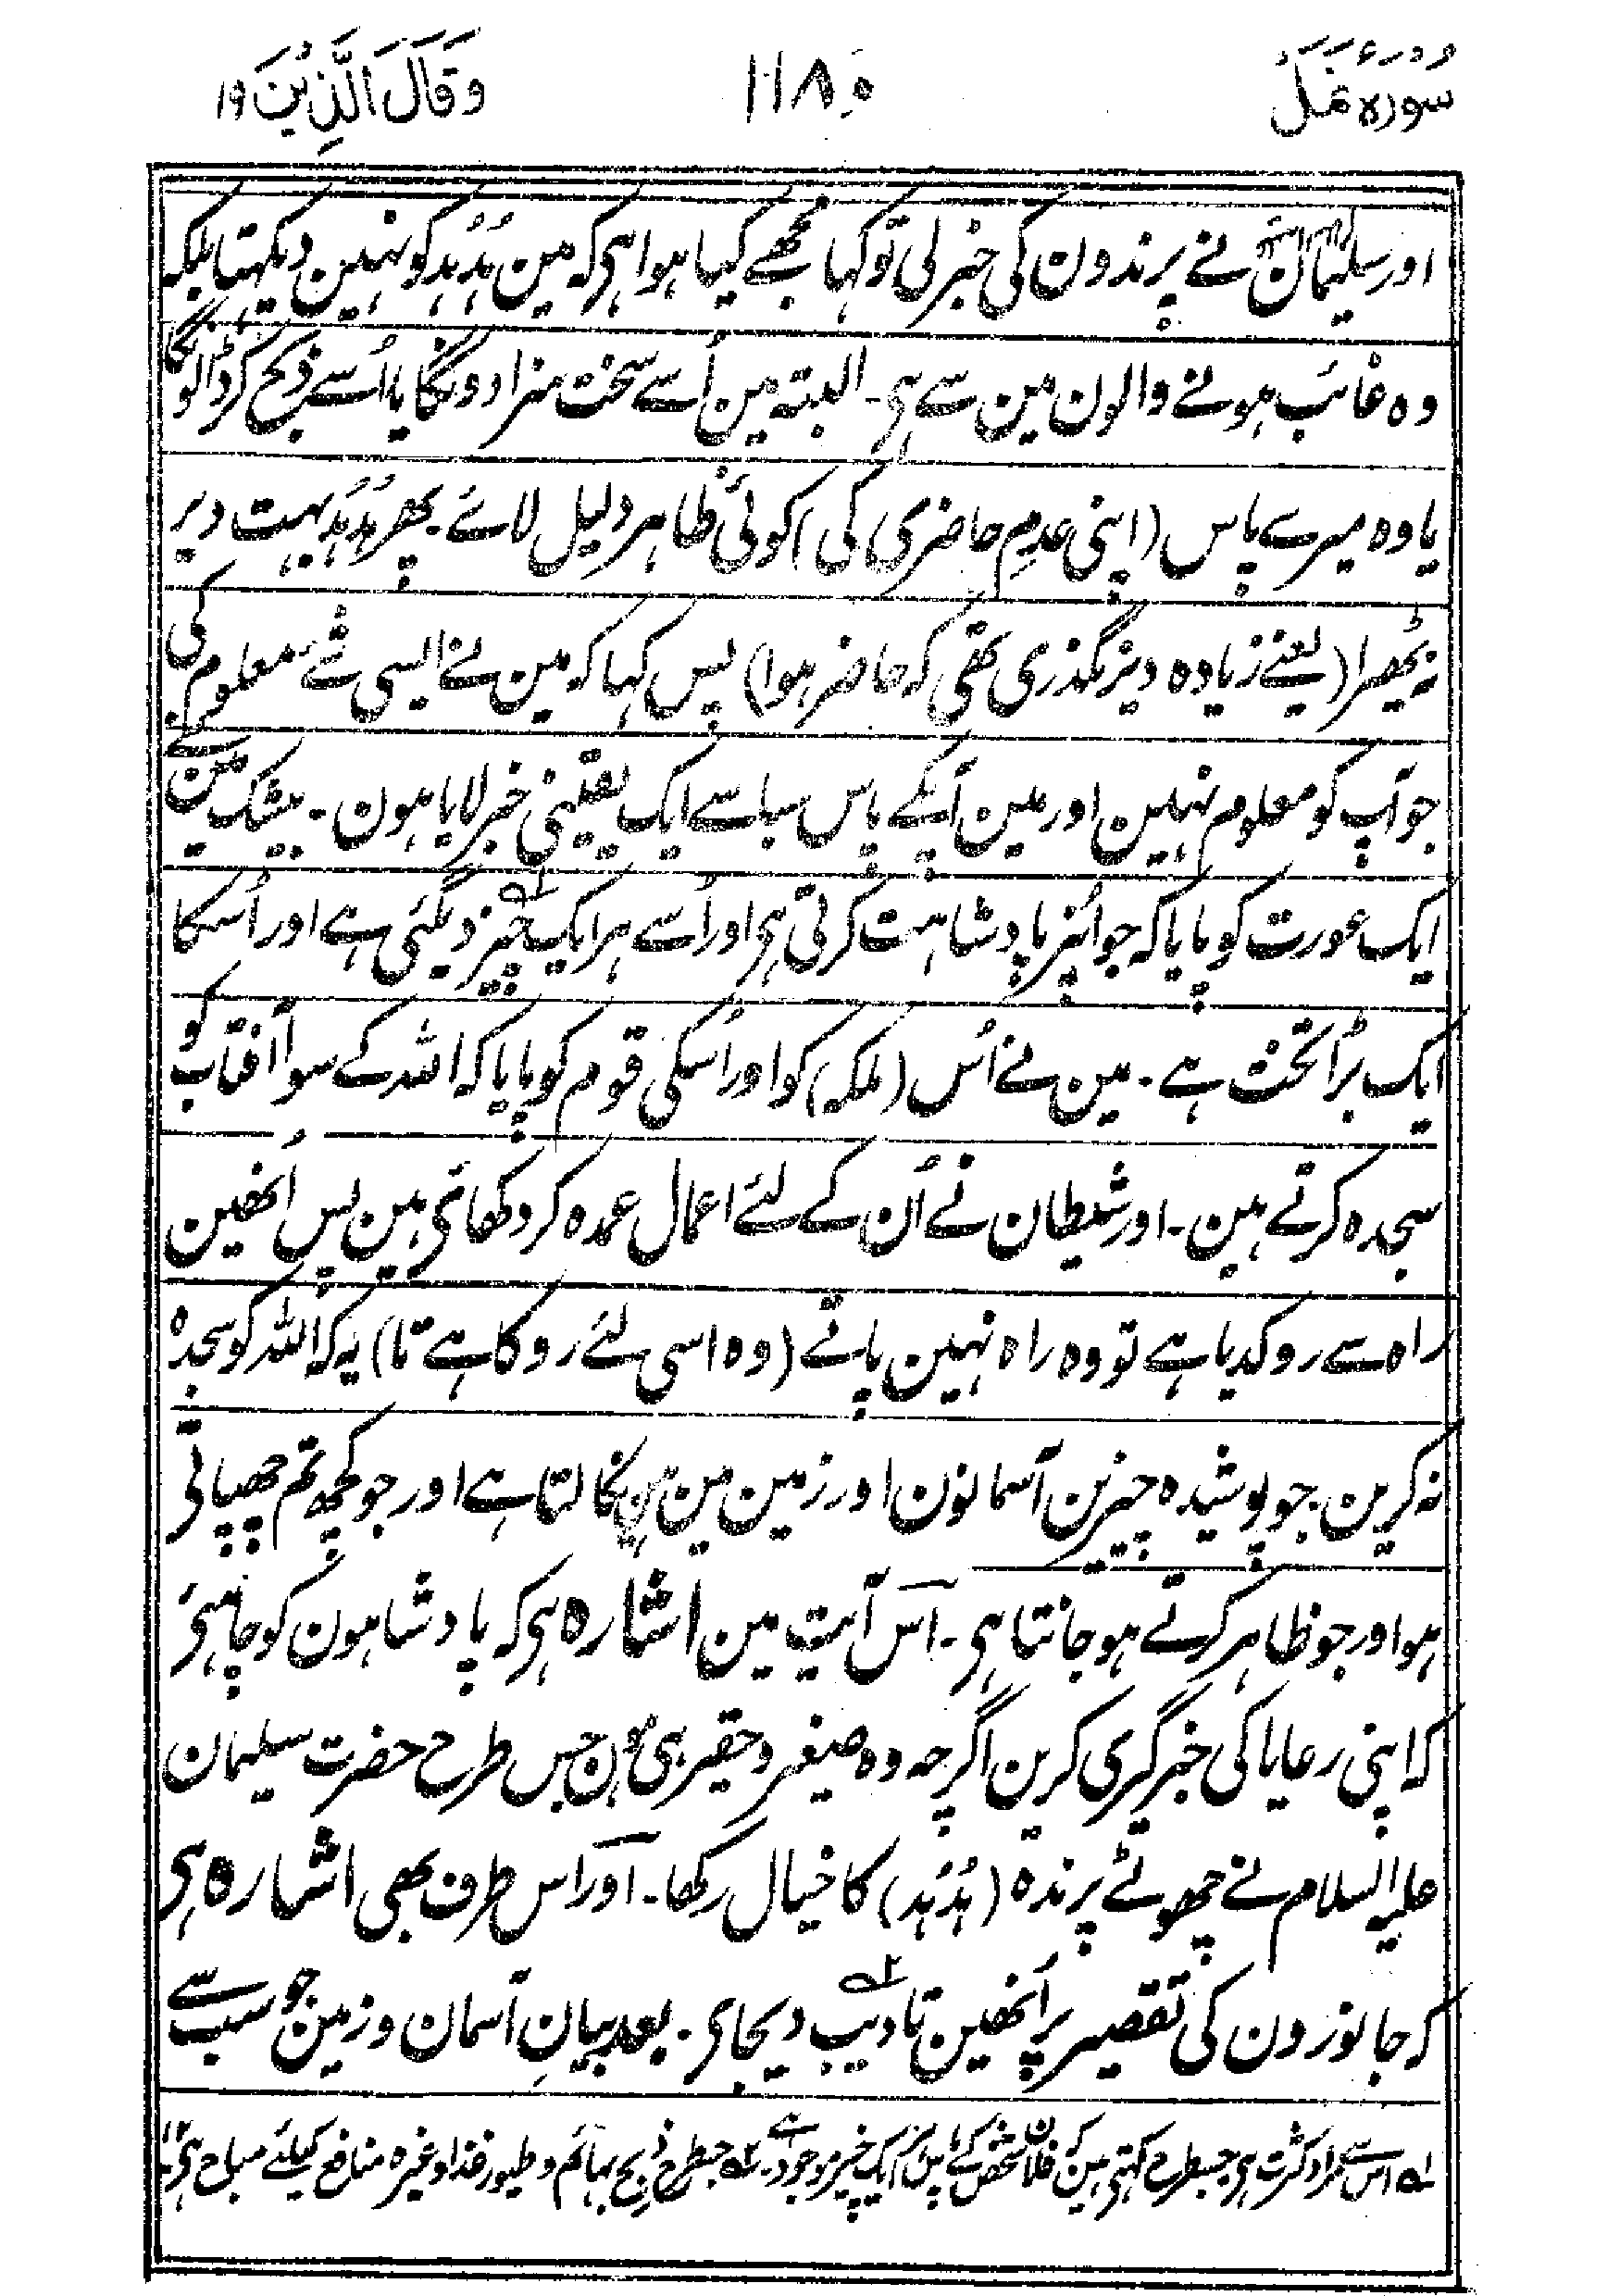 سُوْرَۃُ نَمل ۱۱۸۰ وَقَالَ الَّذِیْنَ ۱۹
اور سلیمان نے پرندون کی خبر لی تو کہا مجھے کیا ہوا ہی کہ مین ہُدہُد کو نہین دیکہتا بلکہ
وہ غائب ہونے والون مین سے ہی۔ البتہ مین اُسے سخت سزا دونگا یا اُسے ذبح کر ڈالونگا
یا وہ میرے پاس (اپنی عدمِ حاضری کی) کوئی ظاہر دلیل لائے۔ پھر ہُدہُد بہت دیر
نہ ٹھیرا (یعنے زیادہ دیر نگذری تھی کہ حاضر ہوا) پس کہا کہ مین نے ایسی شے معلوم کی
جو آپ کو معلوم نہین اور مین آپکے پاس سبا سے ایک یقینی خبر لایا ہون۔ بیشک مین نے
ایک عورت کو پایا کہ جو اُنپر پادشاہت کرتی ہی اور اُسے ہر ایک چیز دیگئی ہے اور اُسکا
ایک بڑا تخت ہے۔ مین نے اُس (ملکہ) کو اور اُسکی قوم کو پایا کہ اللہ کے سوا آفتاب کو
سجدہ کرتے ہین۔ اور شیطان نے اُن کے لئے اعمال عمدہ کر دکھائی ہین پس اُنھین
راہ سے روکدیا ہے تو وہ راہ نہین پاتے (وہ اسی لئے روکا ہے تا) یہ کہ اللہ کو سجدہ
نہ کرین۔ جو پوشیدہ چیزین آسمانون اور زمین مین ہین نکالتا ہے اور جو کچھ تم چھپاتی
ہو اور جو ظاہر کرتے ہو جانتا ہی۔ اس آیت مین اشارہ ہی کہ پادشاہون کو چاہئے
کہ اپنی رعایا کی خبر گیری کرین اگرچہ وہ صغیر و حقیر ہی ہون جس طرح حضرت سلیمان
علیہ السلام نے چھوٹے پرندہ (ہُدہُد) کا خیال رکھا۔ اور اس طرف بھی اشارہ ہی
کہ جانورون کی تقصیر پر اُنھین تادیب ۲ دیجاے۔ بعد بیانِ آسمان و زمین جو سب سے
۱ اس سے مراد کثرت ہی جسطرح کہتے ہین کہ فلان شخص کے پاس ہر ایک چیز موجود ہے ۲ جسطرح ذبح بہائم و طیور غذا وغیرہ منافع کیلئے مباح ہی ۱۲